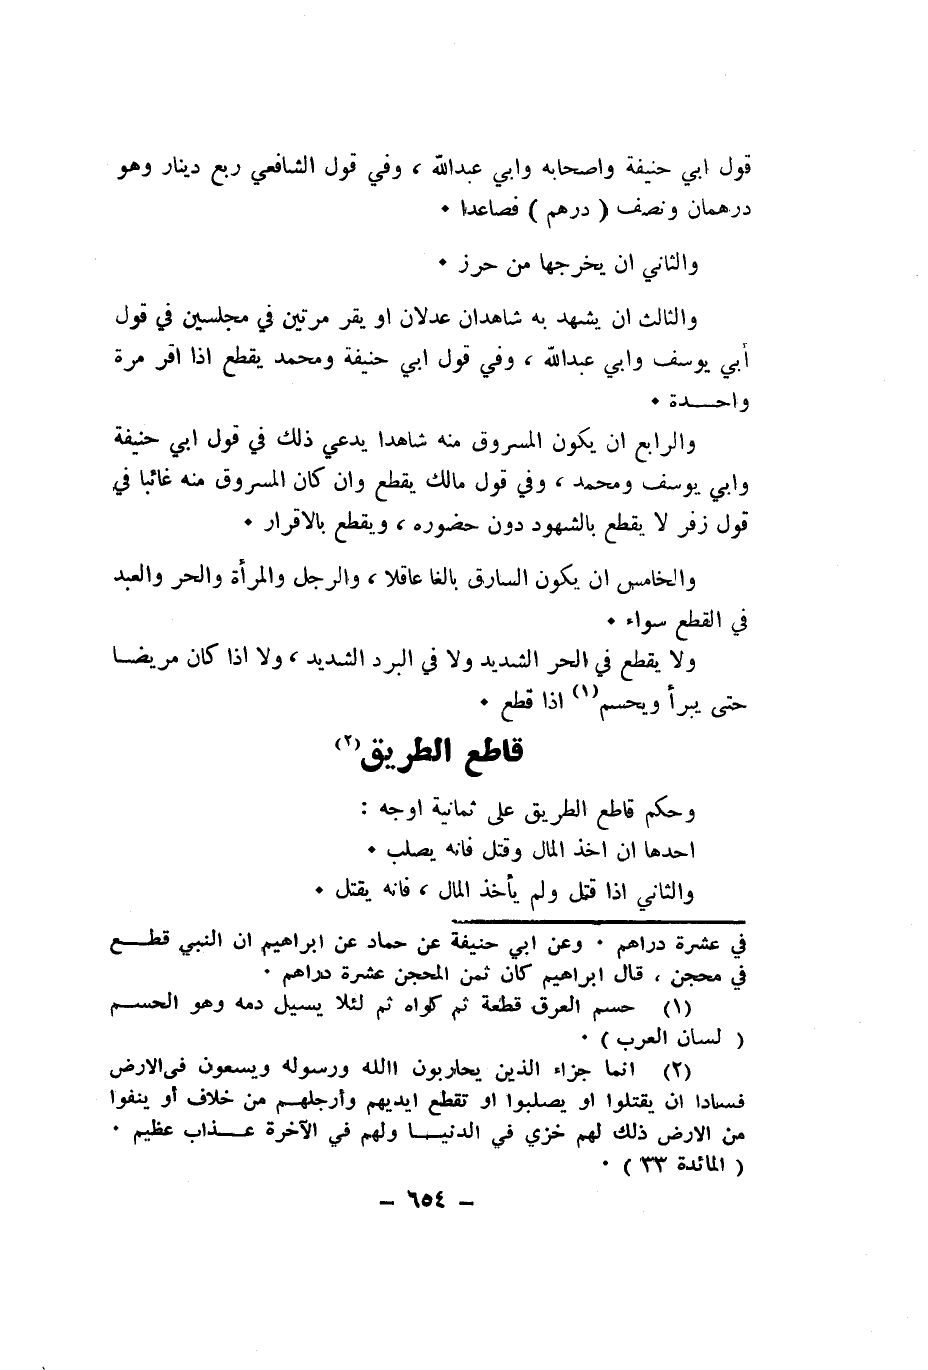 قول ابي حنيفة واصحابه وابي عبدالله ، وفي قول الشافعي ربع دينار وهو
درهمان ونصف ( درهم ) فصاعدا ٠
والثاني ان يخرجها من حرز ٠
والثالث ان يشهد به شاهدان عدلان او يقر مرتين في مجلسين في قول
أبي يوسف وابي عبدالله ، وفي قول ابي حنيفة ومحمد يقطع اذا اقر مرة
واحـــدة ٠
والرابع ان يكون المسروق منه شاهدا يدعي ذلك في قول ابي حنيفة
وابي يوسف ومحمد ، وفي قول مالك يقطع وان كان المسروق منه غائبا في
قول زفر لا يقطع بالشهود دون حضوره ، ويقطع بالاقرار ٠
والخامس ان يكون السارق بالغا عاقلا ، والرجل والمرأة والحر والعبد
في القطع سواء ٠
ولا يقطع في الحر الشديد ولا في البرد الشديد ، ولا اذا كان مريضـا
حتى يبرأ ويحسم(١) اذا قطع ٠
قاطع الطريق(٢)
وحكم قاطع الطريق على ثمانية اوجه :
احدها ان اخذ المال وقتل فانه يصلب ٠
والثاني اذا قتل ولم يأخذ المال ، فانه يقتل ٠
في عشرة دراهم ٠ وعن ابي حنيفة عن حماد عن ابراهيم ان النبي قطـــع
في محجن ، قال ابراهيم كان ثمن المحجن عشرة دراهم ٠
(١) حسم العرق قطعة ثم كواه ثم لئلا يسيل دمه وهو الحســم
( لسان العرب ) ٠
(٢) انما جزاء الذين يحاربون االله ورسوله ويسعون فىالارض
فسادا ان يقتلوا او يصلبوا او تقطع ايديهم وأرجلهــم من خلاف أو ينفوا
من الارض ذلك لهم خزي في الدنيــا ولهم في الآخرة عــذاب عظيم ٠
( المائدة ٣٣ ) ٠
– ٦٥٤ –